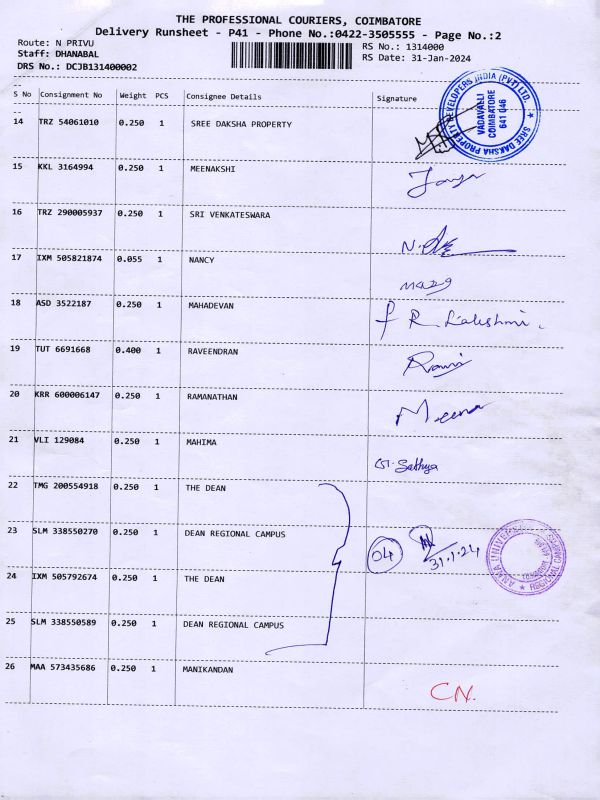 THE PROFESSIONAL COURIERS, COIMBATORE
Delivery Runsheet - P41 - Phone No.:0422-3505555 - Page No.:2
Route: N PRIVU RS No.: 1314000
Staff: DHANABAL RS Date: 31-Jan-2024
DRS No.: DCJB131400002
S No Consignment No Weight PCS Consignee Details Signature
14 TRZ 54061010 0.250 1 SREE DAKSHA PROPERTY
SREE DAKSHA PROPERTY DEVELOPERS INDIA (PVT) LTD.
VADAVALLI
COIMBATORE
641 046
15 KKL 3164994 0.250 1 MEENAKSHI
16 TRZ 290005937 0.250 1 SRI VENKATESWARA
17 IXM 505821874 0.055 1 NANCY
18 ASD 3522187 0.250 1 MAHADEVAN
R Lakshmi.
19 TUT 6691668 0.400 1 RAVEENDRAN
Ravi
20 KRR 600006147 0.250 1 RAMANATHAN
Meena
21 VLI 129084 0.250 1 MAHIMA
Sathya
22 TMG 200554918 0.250 1 THE DEAN
23 SLM 338550270 0.250 1 DEAN REGIONAL CAMPUS
04 31.1.24
24 IXM 505792674 0.250 1 THE DEAN
25 SLM 338550589 0.250 1 DEAN REGIONAL CAMPUS
26 MAA 573435686 0.250 1 MANIKANDAN
CN.